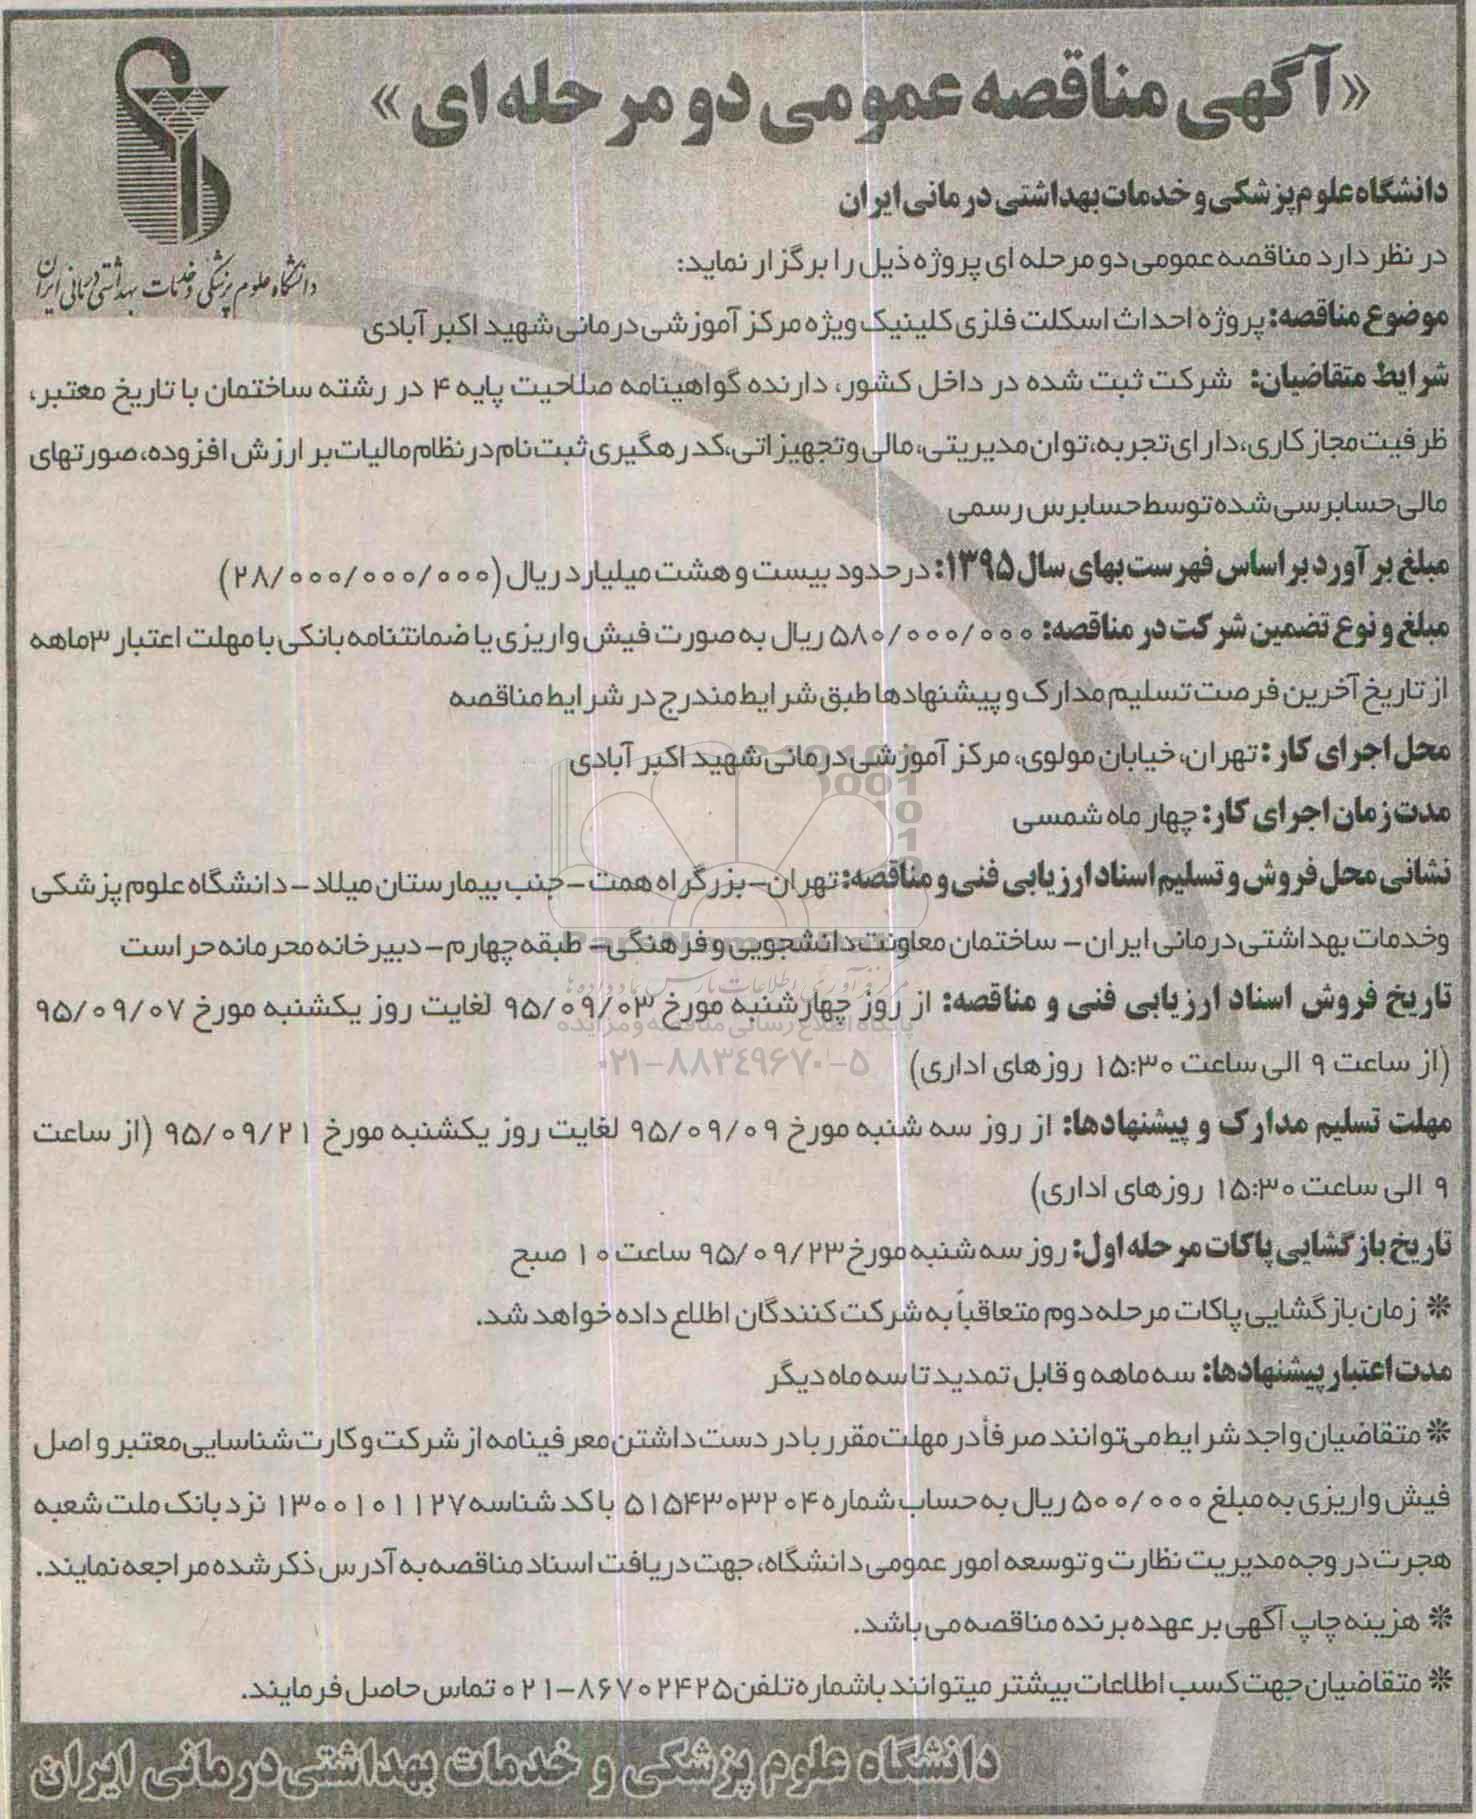 «آگهی مناقصه عمومی دو مرحله ای»
دانشگاه علوم پزشکی و خدمات بهداشتی درمانی ایران
دانشگاه علوم پزشکی و خدمات بهداشتی درمانی ایران
در نظر دارد مناقصه عمومی دو مرحله ای پروژه ذیل را برگزار نماید:
موضوع مناقصه: پروژه احداث اسکلت فلزی کلینیک ویژه مرکز آموزشی درمانی شهید اکبر آبادی
شرایط متقاضیان: شرکت ثبت شده در داخل کشور، دارنده گواهینامه صلاحیت پایه ۴ در رشته ساختمان با تاریخ معتبر،
ظرفیت مجاز کاری، دارای تجربه، توان مدیریتی، مالی و تجهیزاتی، کد رهگیری ثبت نام در نظام مالیات بر ارزش افزوده، صورتهای
مالی حسابرسی شده توسط حسابرس رسمی
مبلغ برآورد بر اساس فهرست بهای سال ۱۳۹۵: در حدود بیست و هشت میلیارد ریال (۲۸/۰۰۰/۰۰۰/۰۰۰)
مبلغ و نوع تضمین شرکت در مناقصه: ۵۸۰/۰۰۰/۰۰۰ ریال به صورت فیش واریزی یا ضمانتنامه بانکی با مهلت اعتبار ۳ماهه
از تاریخ آخرین فرصت تسلیم مدارک و پیشنهادها طبق شرایط مندرج در شرایط مناقصه
محل اجرای کار: تهران، خیابان مولوی، مرکز آموزشی درمانی شهید اکبر آبادی
مدت زمان اجرای کار: چهار ماه شمسی
نشانی محل فروش و تسلیم اسناد ارزیابی فنی و مناقصه: تهران- بزرگراه همت - جنب بیمارستان میلاد - دانشگاه علوم پزشکی
و خدمات بهداشتی درمانی ایران - ساختمان معاونت دانشجویی و فرهنگی - طبقه چهارم - دبیرخانه محرمانه حراست
تاریخ فروش اسناد ارزیابی فنی و مناقصه: از روز چهارشنبه مورخ ۹۵/۰۹/۰۳ لغایت روز یکشنبه مورخ ۹۵/۰۹/۰۷
پایگاه اطلاع رسانی مناقصه و مزایده
۰۲۱-۸۸۳۴۹۶۷۰-۵
(از ساعت ۹ الی ساعت ۱۵:۳۰ روزهای اداری)
مهلت تسلیم مدارک و پیشنهادها: از روز سه شنبه مورخ ۹۵/۰۹/۰۹ لغایت روز یکشنبه مورخ ۹۵/۰۹/۲۱ (از ساعت
۹ الی ساعت ۱۵:۳۰ روزهای اداری)
تاریخ بازگشایی پاکات مرحله اول: روز سه شنبه مورخ ۹۵/۰۹/۲۳ ساعت ۱۰ صبح
* زمان بازگشایی پاکات مرحله دوم متعاقباً به شرکت کنندگان اطلاع داده خواهد شد.
مدت اعتبار پیشنهادها: سه ماهه و قابل تمدید تا سه ماه دیگر
* متقاضیان واجد شرایط می‌توانند صرفاً در مهلت مقرر با در دست داشتن معرفینامه از شرکت و کارت شناسایی معتبر و اصل
فیش واریزی به مبلغ ۵۰۰/۰۰۰ ریال به حساب شماره ۵۱۵۴۳۰۳۲۰۴ با کد شناسه ۱۳۰۰۱۰۱۱۲۷ نزد بانک ملت شعبه
هجرت در وجه مدیریت نظارت و توسعه امور عمومی دانشگاه، جهت دریافت اسناد مناقصه به آدرس ذکر شده مراجعه نمایند.
* هزینه چاپ آگهی بر عهده برنده مناقصه می باشد.
* متقاضیان جهت کسب اطلاعات بیشتر میتوانند با شماره تلفن ۸۶۷۰۲۴۲۵-۰۲۱ تماس حاصل فرمایند.
دانشگاه علوم پزشکی و خدمات بهداشتی درمانی ایران